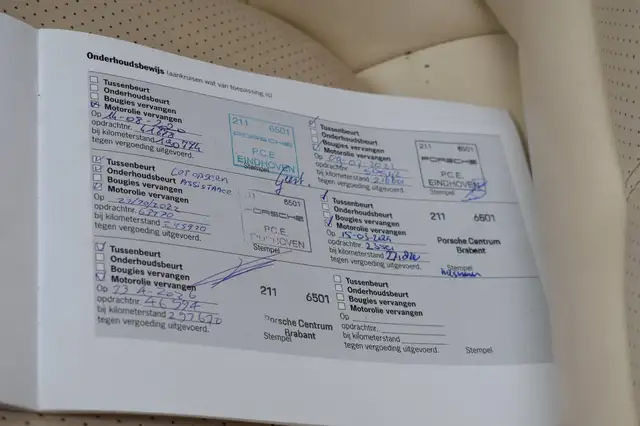 Onderhoudsbewijs (aankruisen wat van toepassing is)
Tussenbeurt
Onderhoudsbeurt
Bougies vervangen
Motorolie vervangen
Op 14-08-2020
opdrachtnr.
bij kilometerstand
tegen vergoeding uitgevoerd.
211 6501
PORSCHE
P.C.E.
EINDHOVEN
Tussenbeurt
Onderhoudsbeurt
Bougies vervangen
Motorolie vervangen
Op
opdrachtnr.
bij kilometerstand
tegen vergoeding uitgevoerd.
211 6501
PORSCHE
P.C.E.
EINDHOVEN
Tussenbeurt
Onderhoudsbeurt
Bougies vervangen
Motorolie vervangen
Op
opdrachtnr.
bij kilometerstand
tegen vergoeding uitgevoerd.
Assistance
211 6501
PORSCHE
P.C.E.
EINDHOVEN
Stempel
Tussenbeurt
Onderhoudsbeurt
Bougies vervangen
Motorolie vervangen
Op
opdrachtnr.
bij kilometerstand
tegen vergoeding uitgevoerd.
211 6501
Porsche Centrum
Brabant
Stempel
Tussenbeurt
Onderhoudsbeurt
Bougies vervangen
Motorolie vervangen
Op
opdrachtnr. 46794
bij kilometerstand 297670
tegen vergoeding uitgevoerd.
211 6501
Porsche Centrum
Brabant
Stempel
Tussenbeurt
Onderhoudsbeurt
Bougies vervangen
Motorolie vervangen
Op
opdrachtnr.
bij kilometerstand
tegen vergoeding uitgevoerd.
Stempel